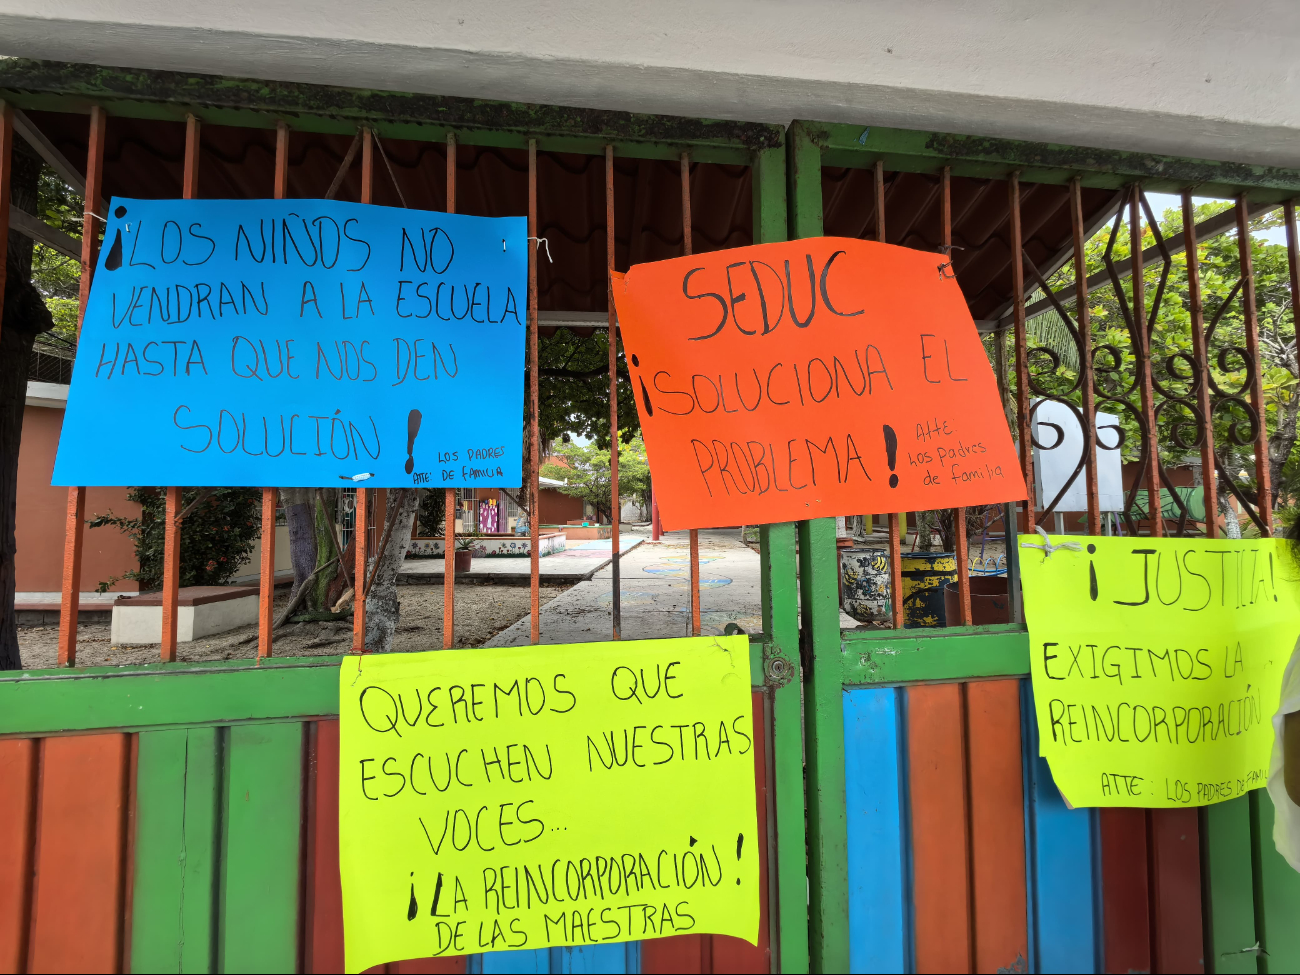 ¡LOS NIÑOS NO
VENDRAN A LA ESCUELA
HASTA QUE NOS DEN
SOLUCIÓN!
LOS PADRES
ATTE: DE FAMILIA
SEDUC
¡SOLUCIONA EL
PROBLEMA!
Atte:
Los padres
de familia
QUEREMOS QUE
ESCUCHEN NUESTRAS
VOCES...
¡LA REINCORPORACIÓN!
DE LAS MAESTRAS
¡JUSTICIA!
EXIGIMOS LA
REINCORPORACIÓN
ATTE: LOS PADRES DE FAMIL